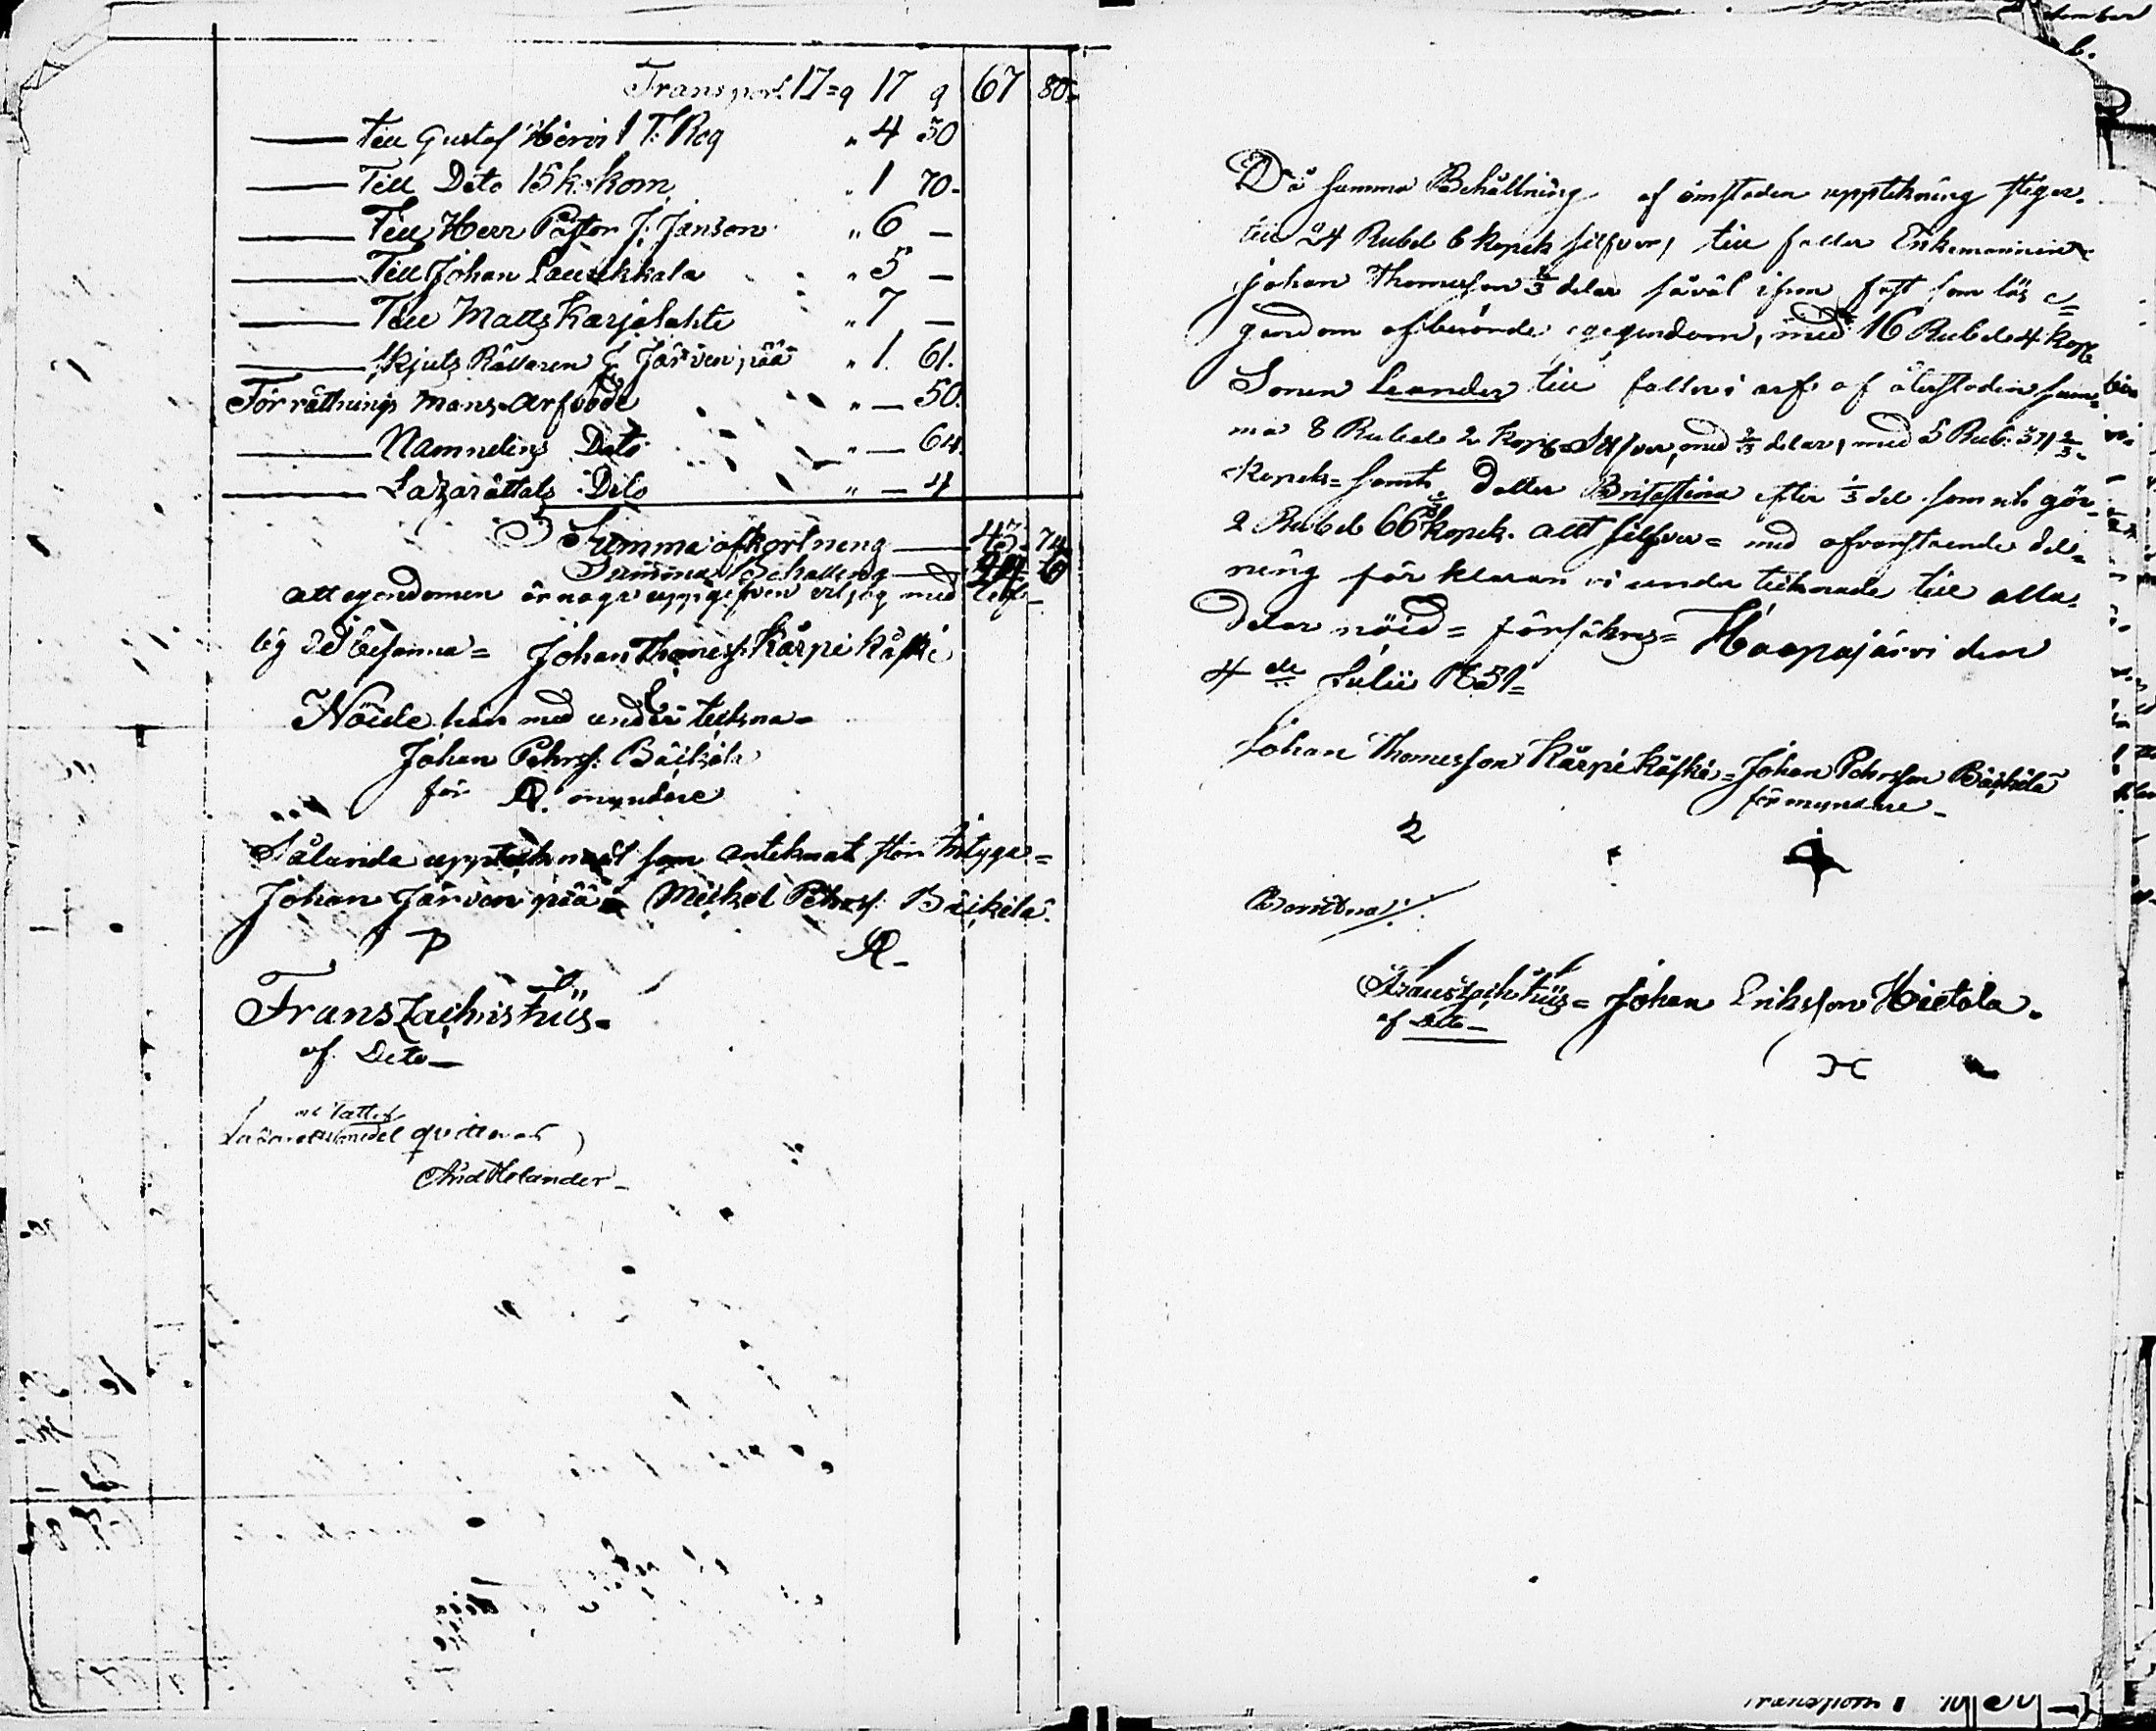 Transport 17=9 17 9 67 80=
Till Gustaf Hiervi 1 T: Rog " 4 50
Till Dito 15 k. korn " 1 70-
Till Herr Pastor J: Janson " 6 —
Till Johan Lauukkala " 5 —
Till Matts Karjalahti " 7 —
Skjuts Rättaren E Järvenpää " 1. 61.
Förrättnings Mans Arfvode " — 50.
Nämndens Dito " — 64.
Lazarättals Dito " — 4
Summa afkortning — 43. 74
Summa Behålling — 24 6
att egendomen är noga uppgifven vil jag med
lig Ed besanna = Johan Thomess: Kärpikäski
Nöide här med under tekna =
Johan Pehrss: Bäikilä
för myndare
Sålunda upptecknat som anteknat står bitygar =
Johan Järvenpää Mickel Pehrss: Bäikilä.
Frans Zachris Fiis.
af Dito —
Lazarettsmedel qvitteras
And Helander —
Då summa Behållning af omstaden upptekning stiger
till 24 Rubel 6 kopek silfver, till faller Enkemannen
Johan Thomesson 2/3 delar såväl i fast som lös e=
gendom egendom, med 16 Rubel 4 kop
Sonen Leander till faller i arf af återstoden sum=
ma 8 Rubel 2 kop Silfver, med 2/3 delar, med 5 Rub. 34 2/3
kopek = samt dotter Britastina efter 1/3 del som utgör
2 Rubel 66 kopek. allt silfver = med ofvanstående del=
ning förklaran vi under teknade till alla
delar nöid = försäkras = Haapajärvi den
4 de Julii 1851 =
Johan Thomesson Kärpikäski = Johan Pehrsson Bäikilä
förmyndare —
Bevitna //.
Frans Zach Fiis = Johan Eriksson Hietala.
af Dito —